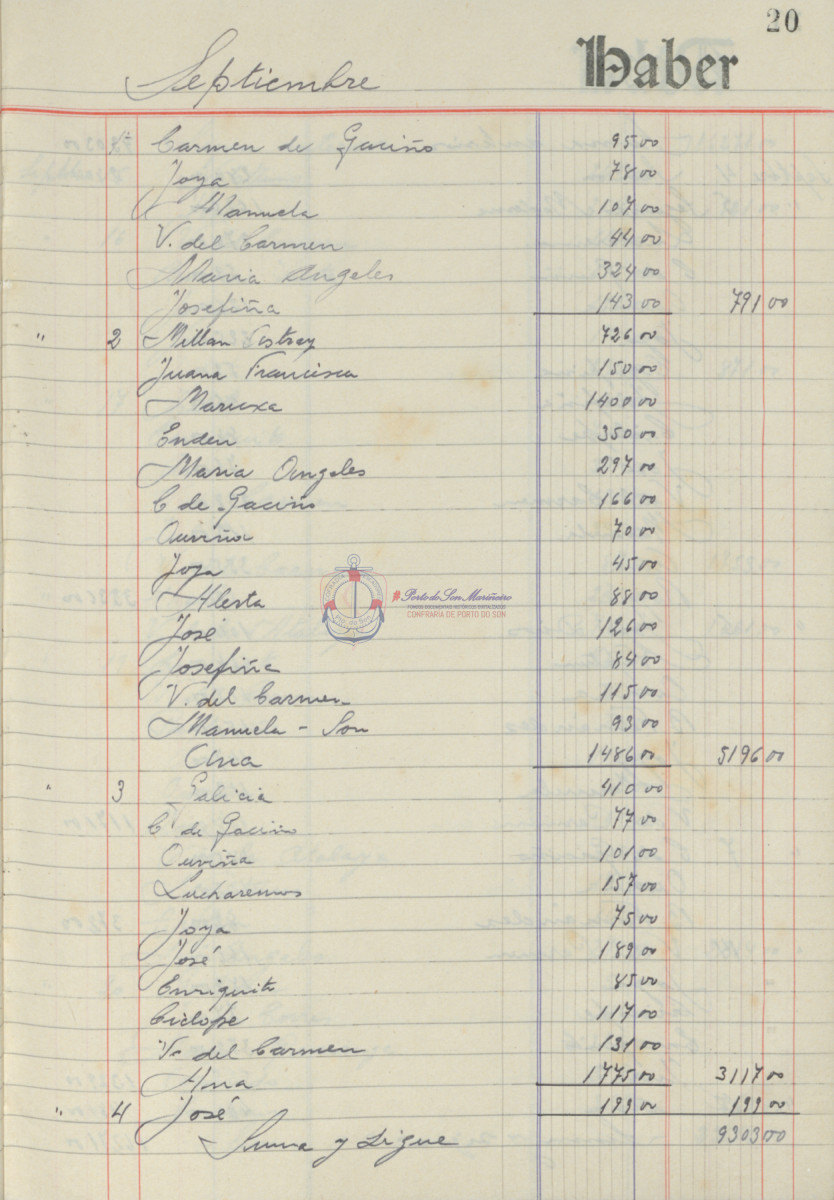 20
Septiembre Haber
1º Carmen de Gaciño 95 00
Joya 78 00
Manuela 107 00
V. del Carmen 44 00
Maria Angeles 324 00
Josefiña 143 00 791 00
" 2 Millan Astray 726 00
Juana Francisca 150 00
Maruxa 1400 00
Enden 350 00
Maria Angeles 297 00
C de Gaciño 166 00
Ouviña 70 00
Joya 45 00
Alerta 88 00
José 126 00
Josefiña 84 00
V. del Carmen 115 00
Manuela - Son 93 00
Ana 1486 00 5196 00
" 3 Galicia 410 00
C de Gaciño 77 00
Ouviña 101 00
Lucharemos 157 00
Joya 75 00
José 189 00
Enriquito 85 00
Ciclope 117 00
V. del Carmen 131 00
Ana 1775 00 3117 00
" 4 José 199 00 199 00
Suma y Sigue 9303 00
#Porto do Son Mariñeiro
CONFRARIA DE PORTO DO SON